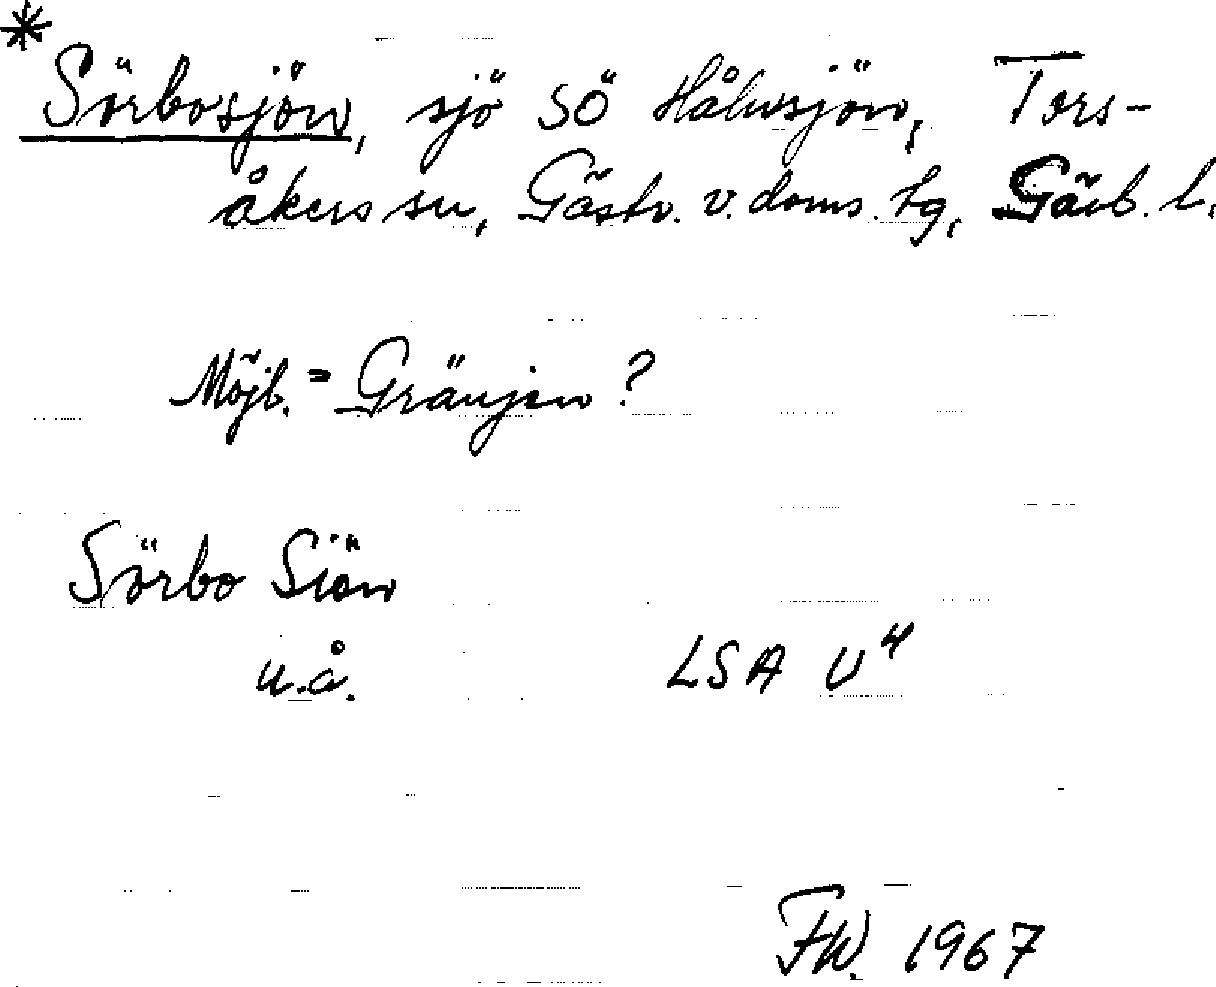 * Sörbosjön, sjö SÖ Hålvsjön, Tors-
åkers sn, Gästr. v. doms. tg, Gävb. l.
Möjl. = Gränjen ?
Sörbo Siön
u.å. LSA U4
FW. 1967